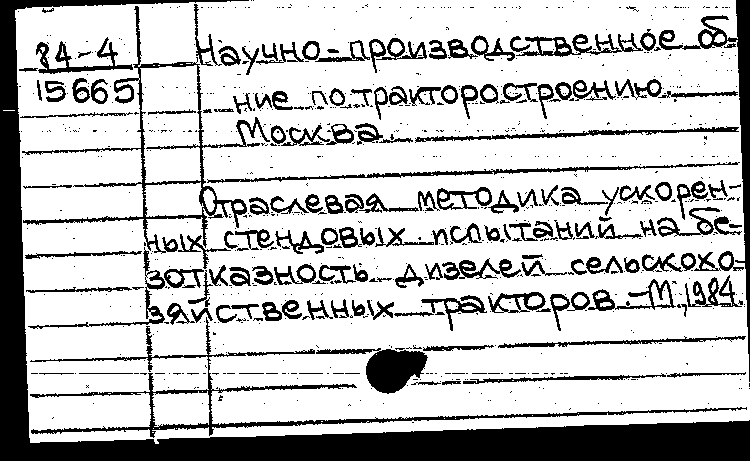 84-4 Научно-производственное об-
15665 ние по тракторостроению.
Москва.
Отраслевая методика ускорен-
ных стендовых испытаний на бе-
зотказность дизелей сельскохо-
зяйственных тракторов.-М.,1984.